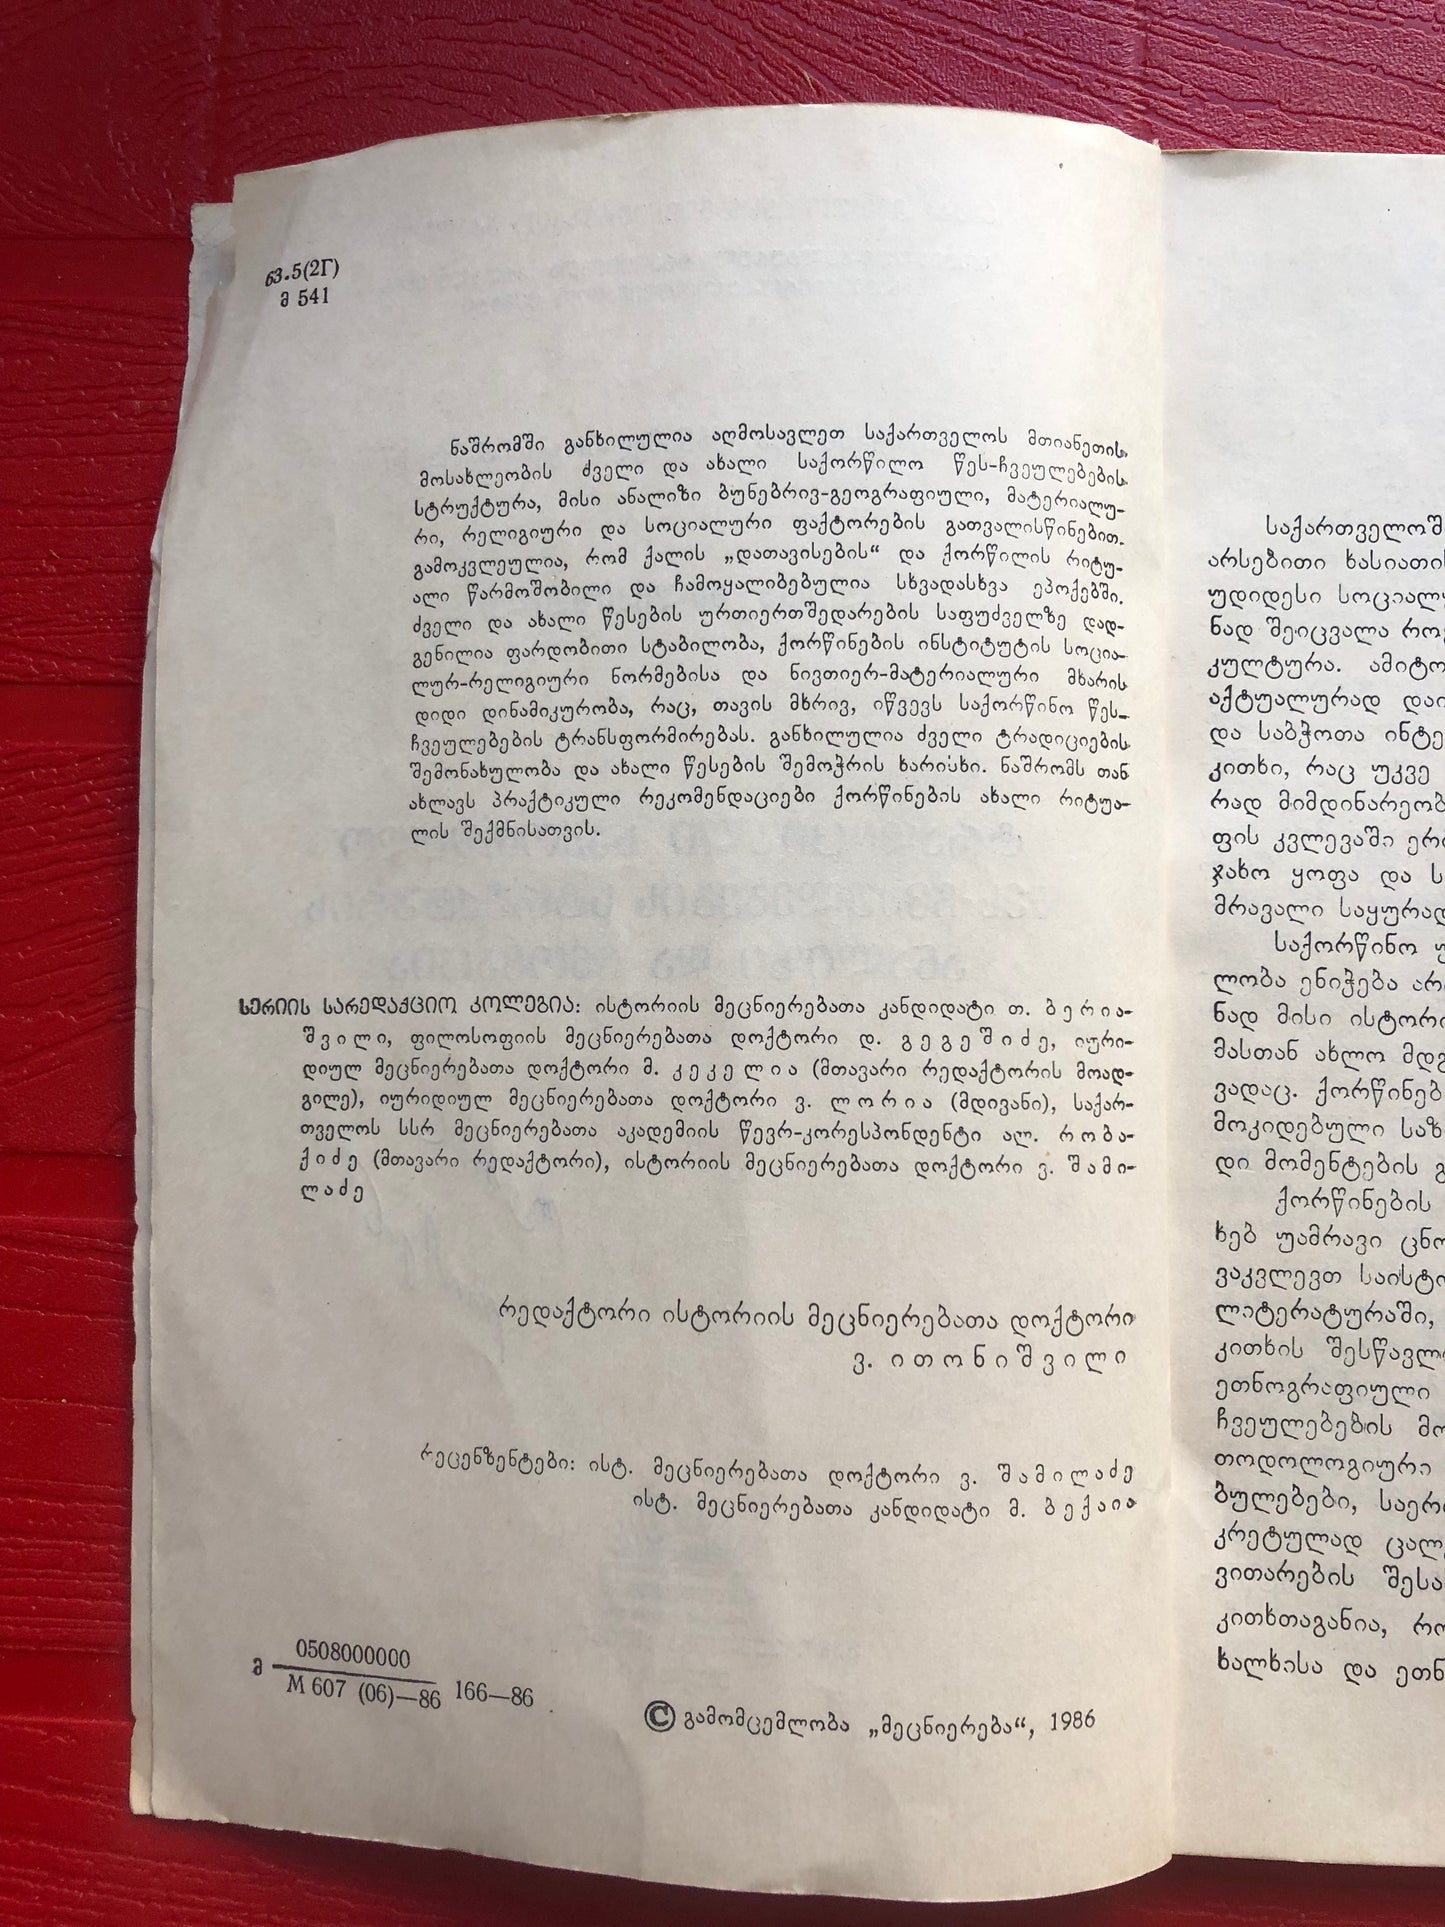 63.5(2Г)
მ 541
ნაშრომში განხილულია აღმოსავლეთ საქართველოს მთიანეთის
მოსახლეობის ძველი და ახალი საქორწილო წეს-ჩვეულებების
სტრუქტურა, მისი ანალიზი ბუნებრივ-გეოგრაფიული, მატერიალუ-
რი, რელიგიური და სოციალური ფაქტორების გათვალისწინებით.
გამოკვლეულია, რომ ქალის „დათავისების“ და ქორწილის რიტუ-
ალი წარმოშობილი და ჩამოყალიბებულია სხვადასხვა ეპოქებში.
ძველი და ახალი წესების ურთიერთშედარების საფუძველზე დად-
გენილია ფარდობითი სტაბილობა, ქორწინების ინსტიტუტის სოცია-
ლურ-რელიგიური ნორმებისა და ნივთიერ-მატერიალური მხარის
დიდი დინამიკურობა, რაც, თავის მხრივ, იწვევს საქორწინო წეს-
ჩვეულებების ტრანსფორმირებას. განხილულია ძველი ტრადიციების
შემონახულობა და ახალი წესების შემოჭრის ხარისხი. ნაშრომს თან
ახლავს პრაქტიკული რეკომენდაციები ქორწინების ახალი რიტუა-
ლის შექმნისათვის.
სერიის სარედაქციო კოლეგია: ისტორიის მეცნიერებათა კანდიდატი თ. ბერია-
შვილი, ფილოსოფიის მეცნიერებათა დოქტორი დ. გეგეშიძე, იური-
დიულ მეცნიერებათა დოქტორი მ. კეკელია (მთავარი რედაქტორის მოად-
გილე), იურიდიულ მეცნიერებათა დოქტორი ვ. ლორია (მდივანი), საქარ-
თველოს სსრ მეცნიერებათა აკადემიის წევრ-კორესპონდენტი ალ. რობა-
ქიძე (მთავარი რედაქტორი), ისტორიის მეცნიერებათა დოქტორი ვ. შამი-
ლაძე
რედაქტორი ისტორიის მეცნიერებათა დოქტორი
ვ. ითონიშვილი
რეცენზენტები: ისტ. მეცნიერებათა დოქტორი ვ. შამილაძე
ისტ. მეცნიერებათა კანდიდატი მ. ბექაია
მ 0508000000
М 607 (06)—86 166—86
© გამომცემლობა „მეცნიერება“, 1986
საქართველოშ
არსებითი ხასიათის
უდიდესი სოციალუ
ნად შეიცვალა რო
კულტურა. ამიტო
აქტუალურად დაი
და საბჭოთა ინტე
კითხი, რაც უკვე
რად მიმდინარეობ
ფის კვლევაში ერ
ჯახო ყოფა და ს
მრავალი საყურად
საქორწინო უ
ლობა ენიჭება არ
ნად მისი ისტორი
მასთან ახლო მდგ
ვადაც. ქორწინებ
მოკიდებული საზ
დი მომენტების გ
ქორწინების
ხებ უამრავი ცნო
ვაკვლევთ საისტო
ლიტერატურაში,
კითხის შესწავლი
ეთნოგრაფიული
ჩვეულებების მო
თოდოლოგიური
ბულებები, საერ
კრეტულად ცალ
ვითარების შესა
კითხთაგანია, რო
ხალხისა და ეთნ